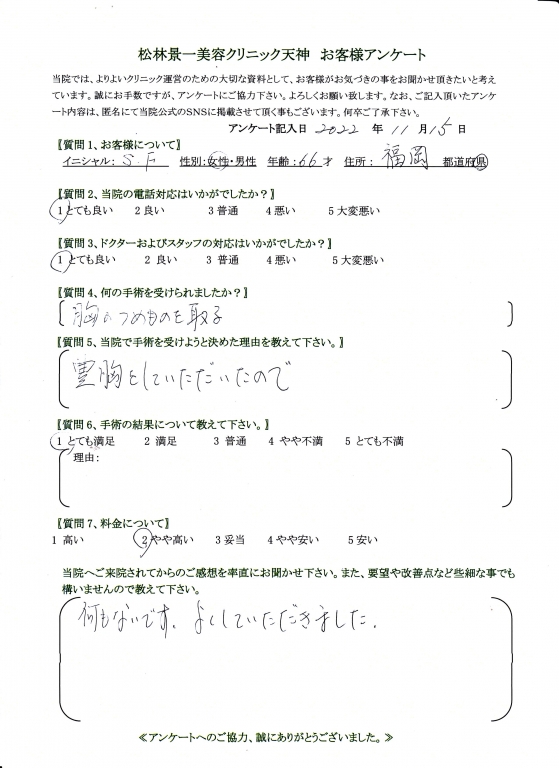 松林景一美容クリニック天神 お客様アンケート
当院では、よりよいクリニック運営のための大切な資料として、お客様がお気づきの事をお聞かせ頂きたいと考え
ています。誠にお手数ですが、アンケートにご協力下さい。よろしくお願い致します。なお、ご記入頂いたアンケ
ート内容は、匿名にて当院公式のSNSに掲載させて頂く事もございます。何卒ご了承下さい。
アンケート記入日 2022 年 11 月 15 日
〖質問1、お客様について〗
イニシャル: S.F 性別:女性・男性 年齢:66才 住所: 福岡 都道府県
〖質問2、当院の電話対応はいかがでしたか？〗
1とても良い 2良い 3普通 4悪い 5大変悪い
〖質問3、ドクターおよびスタッフの対応はいかがでしたか？〗
1とても良い 2 良い 3 普通 4悪い 5大変悪い
〖質問4、何の手術を受けられましたか？〗
胸のつめものを取る
〖質問5、当院で手術を受けようと決めた理由を教えて下さい。〗
豊胸をしていただいたので
〖質問6、手術の結果について教えて下さい。〗
1とても満足 2 満足 3 普通 4 やや不満 5 とても不満
理由:
〖質問7、料金について〗
1 高い 2やや高い 3妥当 4やや安い 5安い
当院へご来院されてからのご感想を率直にお聞かせ下さい。また、要望や改善点など些細な事でも
構いませんので教えて下さい。
何もないです。よくしていただきました。
≪アンケートへのご協力、誠にありがとうございました。≫